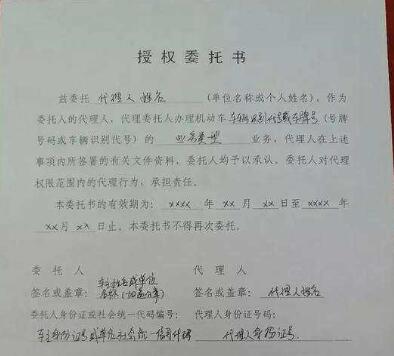 授权委托书
兹委托 代理人姓名 (单位名称或个人姓名),作为
委托人的代理人,代理委托人办理机动车 车辆识别代号或车牌号 (号牌
号码或车辆识别代号)的 业务类型 业务,代理人在上述
事项内所签署的有关文件资料,委托人均予以承认。委托人对代理
权限范围内的代理行为,承担责任。
本委托书的有效期为: xxxx 年 xx 月 xx 日至 xxxx 年
xx 月 xx 日止。本委托书不得再次委托。
委 托 人 代 理 人
车主姓名或单位
签名或盖章: (加盖公章) 签名或盖章: 代理人姓名
委托人身份证或社会统一代码编号: 代理人身份证号码:
车主身份证号或单位社会统一信用代码 代理人身份证号